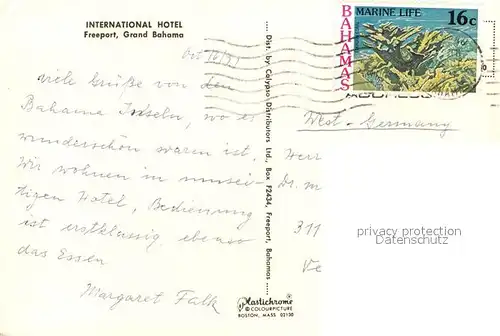 INTERNATIONAL HOTEL
Freeport, Grand Bahama
Oct
viele Grüße von den
Bahama Inseln, wo es
wunderschön waren ist.
Wir wohnen in
tigen Hotel, Bedienung
ist erstklassig, ebenso
das Essen
Margaret Falk
.... Dist. by Calypso Distributors Ltd., Box F2434, Freeport, Bahamas ....
Plastichrome®
© COLOURPICTURE
BOSTON, MASS 02130
BAHAMAS
MARINE LIFE 16c
West-Germany
Herr
Dr. m
311
Ve
privacy protection
Datenschutz